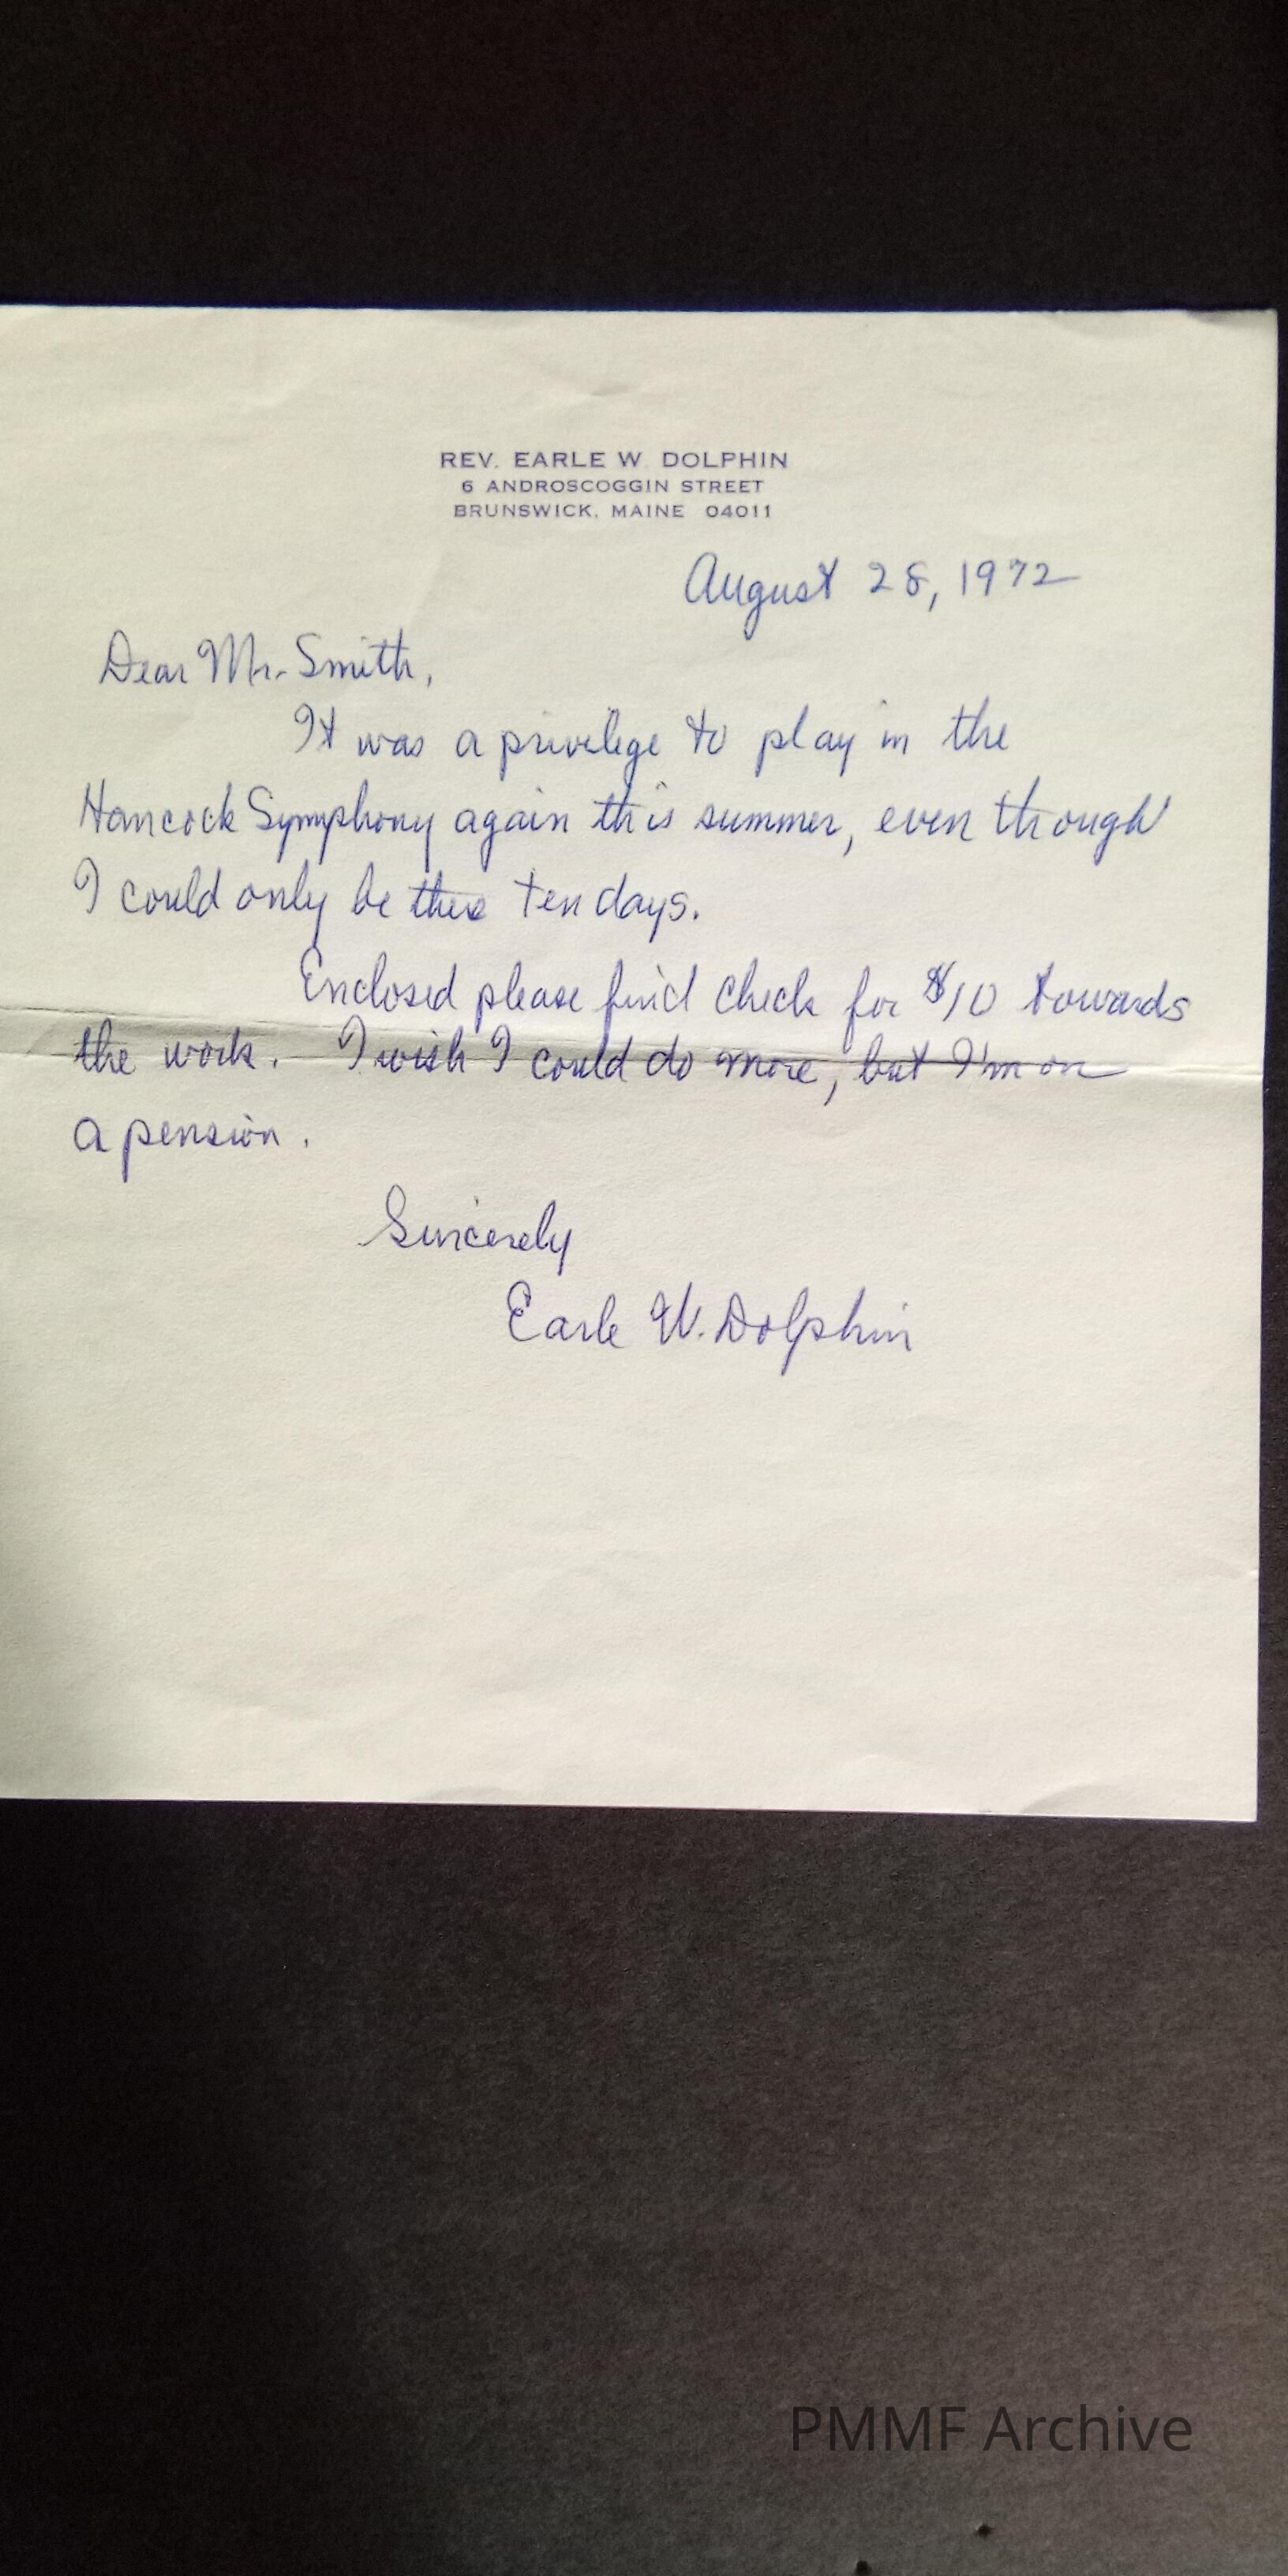 REV. EARLE W. DOLPHIN
6 ANDROSCOGGIN STREET
BRUNSWICK, MAINE 04011
August 28, 1972
Dear Mr. Smith,
It was a privilege to play in the
Hancock Symphony again this summer, even though
I could only be there ten days.
Enclosed please find check for $10 towards
the work. I wish I could do more, but I'm on
a pension.
Sincerely
Earle W. Dolphin
PMMF Archive